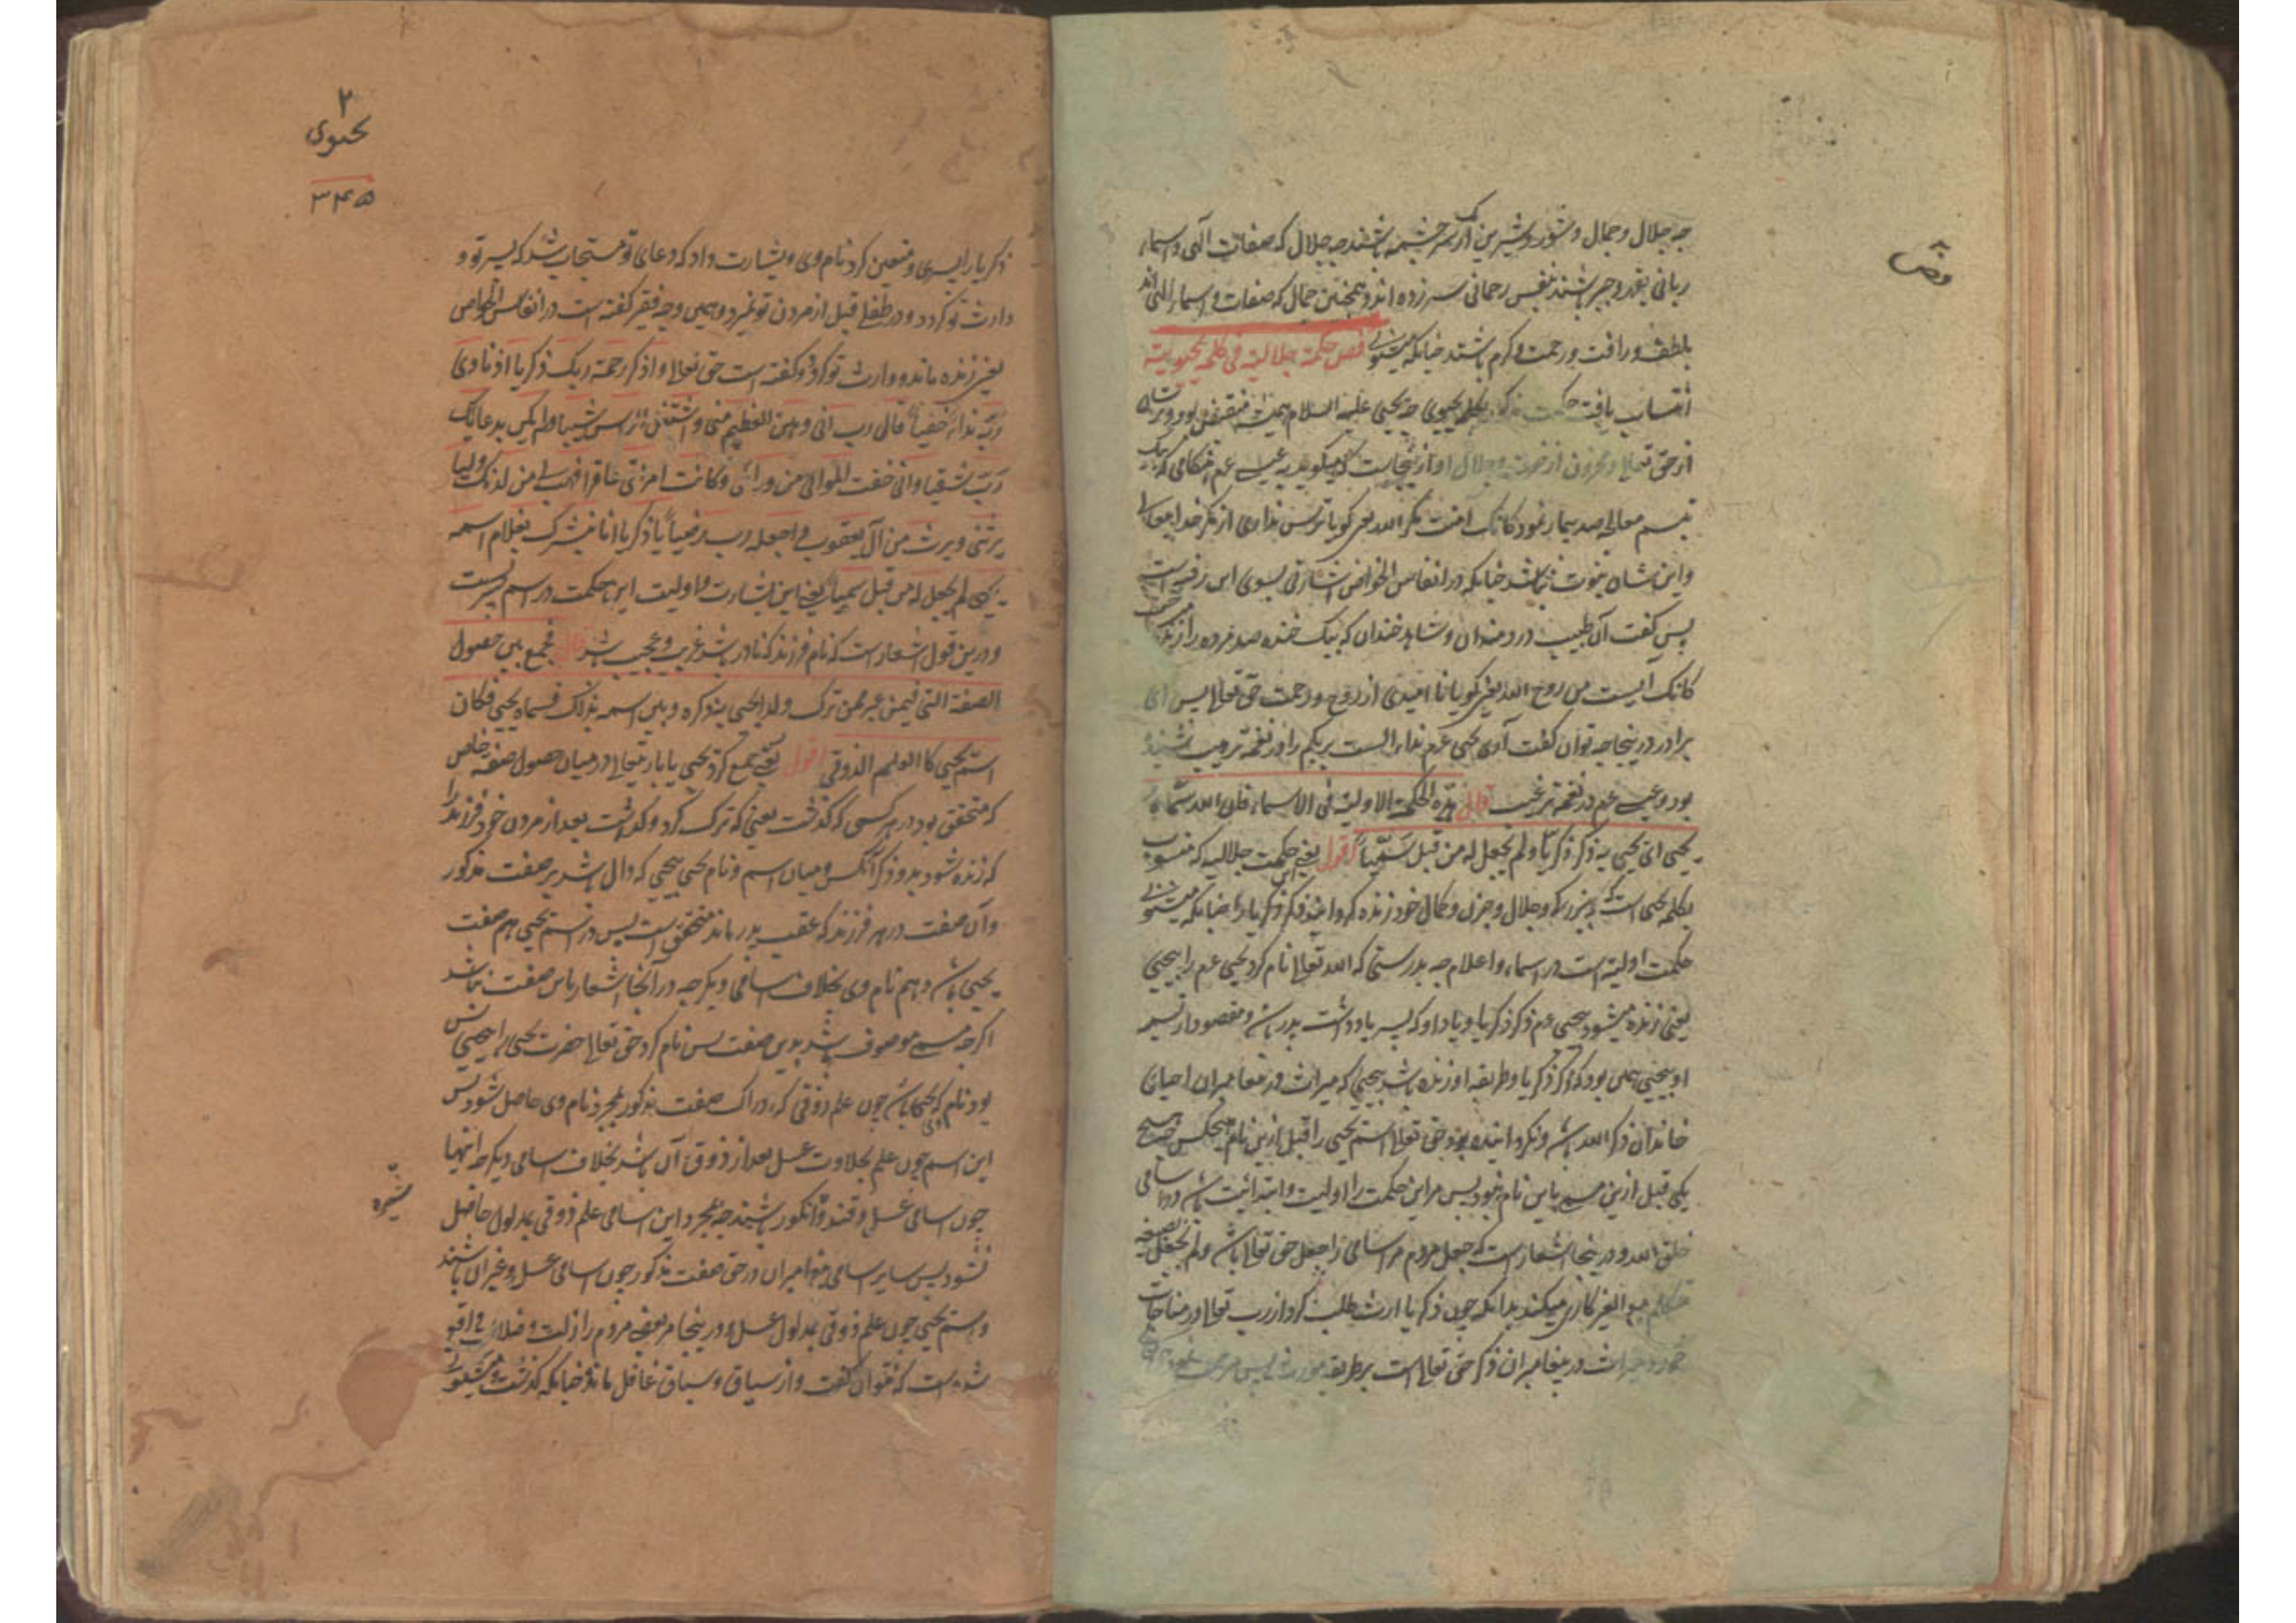 فص
چه جلال و جمال و شور و شیرین از یک چشمه باشند چه جلال که صفات الهی و اسماء
ربانی بقهر و جبر باشند بنفس رحمانی سر زده اند و همچنین جمال که صفات و اسماء الهی اند
بلطف و رافت و رحمت و کرم باشند چنانکه میشنوی فص حکمة جلالیة فی کلمة یحیویة
انتساب یافت حکمت مذکور بکلمه یحیوی چه یحیی علیه السلام همیشه منقبض بود و ترسان
از حق تعالی و محزون از خوف و جلال او از اینجاست که میگوید به عیسی عم هنگامی که یک
تبسم معالجه صد بیمار نمود کانک آمنت مکر الله یعنی گویا ترس نداری از مکر خدا تعالی
و این شان نبوت نباشد چنانکه در انفاس الخواص اشارتی بسوی این رفته است
پس گفت آن طبیب دردمندان و شاهد خندان که بیک خنده صد مرده را زنده
کانک آیست من روح الله یعنی گویا نا امیدی از روح و رحمت حق تعالی پس ای
برادر در اینجا چه توان گفت آری یحیی عم نداء الست بربکم را در نغمه ترهیب شنیده
بود و عیسی عم در نغمه ترغیب قال هذه الحکمة الاولیة فی الاسماء فان الله سماه
یحیی ای یحیی به ذکر زکریا و لم یجعل له من قبل سمیا اقول یعنی این حکمت جلالیه که منسوب
بکلمه یحیی است که و جلال و حزن و کمال خود زنده گرداننده ذکر زکریا را چنانکه میشنوی
حکمت اولیه است در اسماء و اعلام چه بدرستی که الله تعالی نام کرد یحیی عم را بیحیی
یعنی زنده میشود بیحیی عم ذکر زکریا و یاد او که پسر یادداشت پدر باشد و مقصود از تسمیه
او بیحیی همی بود که ذکر زکریا و طریقه او زنده باشد بیحیی که میراث در پیغامبران احیای
خاندان ذکر الله باشد و نگردانیده بود حق تعالی اسم یحیی را قبل ازین نام هیچکس صحیح
یکی قبل ازین مسمی باین نام نبود پس مر این حکمت را اولیت و ابتدائیت باشد در اسامی
خلق الله و در اینجا اشعار است که جعل مردم مر اسامی را جعل حق تعالی باشد و لم نجعل بصیغه
متکلم مع الغیر کاری میکند بدانکه چون زکریا ارث طلب کرد از رب تعالی در مناجات
خود و میراث در پیغامبران ذکر حق تعالی است بر طریقه مورث پس مرحمت
۲
یحیوی
۳۴۵
زکریا را پسری و متعین کرد نام وی و بشارت داد که دعای تو مستجاب شد که پسر تو و
وارث تو گردد و در طفلی قبل از مردن تو نمیرد و همین وجه فقیر گفته است در انفاس الخواص
یعنی زنده ماند و وارث تو گردد و گفته است حق تعالی و اذکر رحمة ربک زکریا اذ نادی
ربه نداء خفیا قال رب انی وهن العظم منی و اشتعل الراس شیبا و لم اکن بدعائک
رب شقیا و انی خفت الموالی من ورائی و کانت امرأتی عاقرا فهب لی من لدنک ولیا
یرثنی و یرث من آل یعقوب و اجعله رب رضیا یا زکریا انا نبشرک بغلام اسمه
یحیی لم نجعل له من قبل سمیا یعنی این بشارت و اولیت این حکمت در اسم پسرست
و درین قول اشعار است که نام فرزند که نادر باشد غریب و عجیب باشد قال فجمع بین حصول
الصفة التی فیمن غبر ممن ترک ولدا یحیی به ذکره و بین اسمه بذلک فسماه یحیی فکان
اسم یحیی کالعلم الذوقی اقول یعنی جمع کرد یحیی یا باریتعالی در میان حصول صفة خاص
که متحقق بود در هر کسی که گذشت یعنی که ترک کرد و گذاشت بعد از مردن خود فرزند را
که زنده شود بدو ذکر آنکس و میان اسم و نام یحیی بیحیی که دال باشد بر صفت مذکور
و آن صفت در هر فرزند که عقب پدر ماند متحقق است پس در اسم یحیی هم صفت
یحیی باشد و هم نام وی بخلاف اسامی دیگر چه در آنها اشعار باین صفت نباشد
اگرچه مسمی موصوف باشد بدین صفت پس نام کرد حق تعالی حضرت یحیی را بیحیی پس
بود نام وی که یحیی باشد چون علم ذوقی که ادراک صفت مذکور بمجرد نام وی حاصل شود پس
این اسم چون علم بحلاوت عسل بعد از ذوق آن باشد بخلاف اسامی دیگر که اینها
چون اسامی عسل و قند و انگور باشند چه بمجرد این اسامی علم ذوقی بمدلول حاصل
شیره
نشود پس سایر اسامی پیغامبران در حق صفت مذکور چون اسامی عسل و غیر آن باشند
و اسم یحیی چون علم ذوقی بمدلول عسل و در اینجا مر بعضی مردم را زلت و ضلالتی واقع
شده است که نتوان گفت و از سیاق و سباق غافل مانده چنانکه گذشت و میشنوی